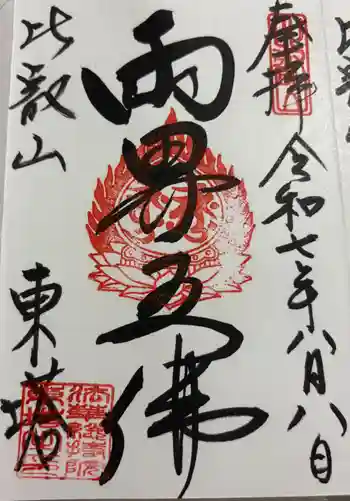 奉拝
令和七年八月八日
両界五佛
比叡山
東塔